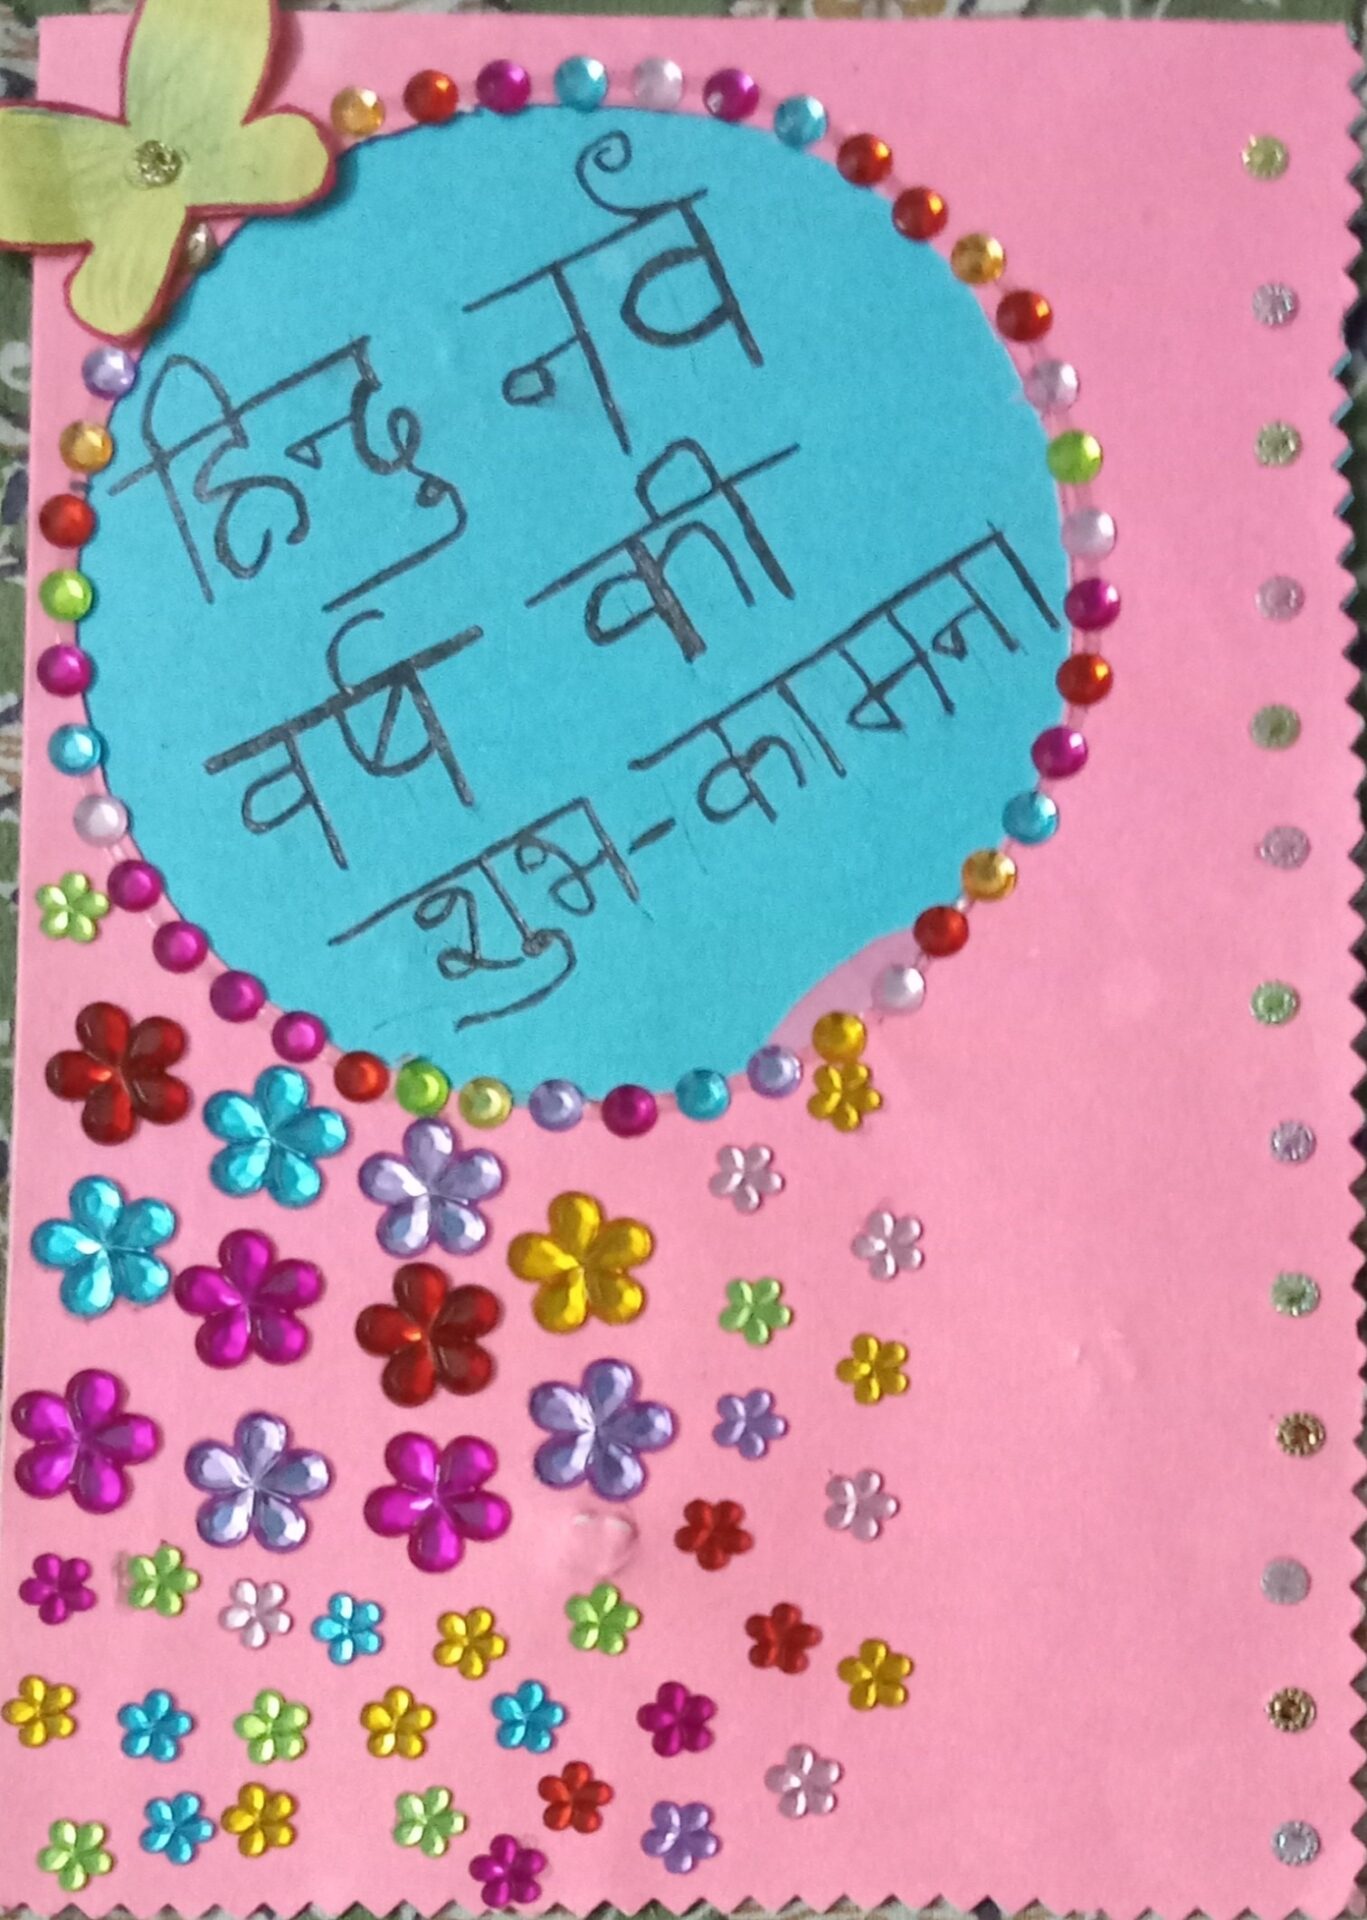 हिन्दु नर्व
वर्ष की
शुभ-कामना